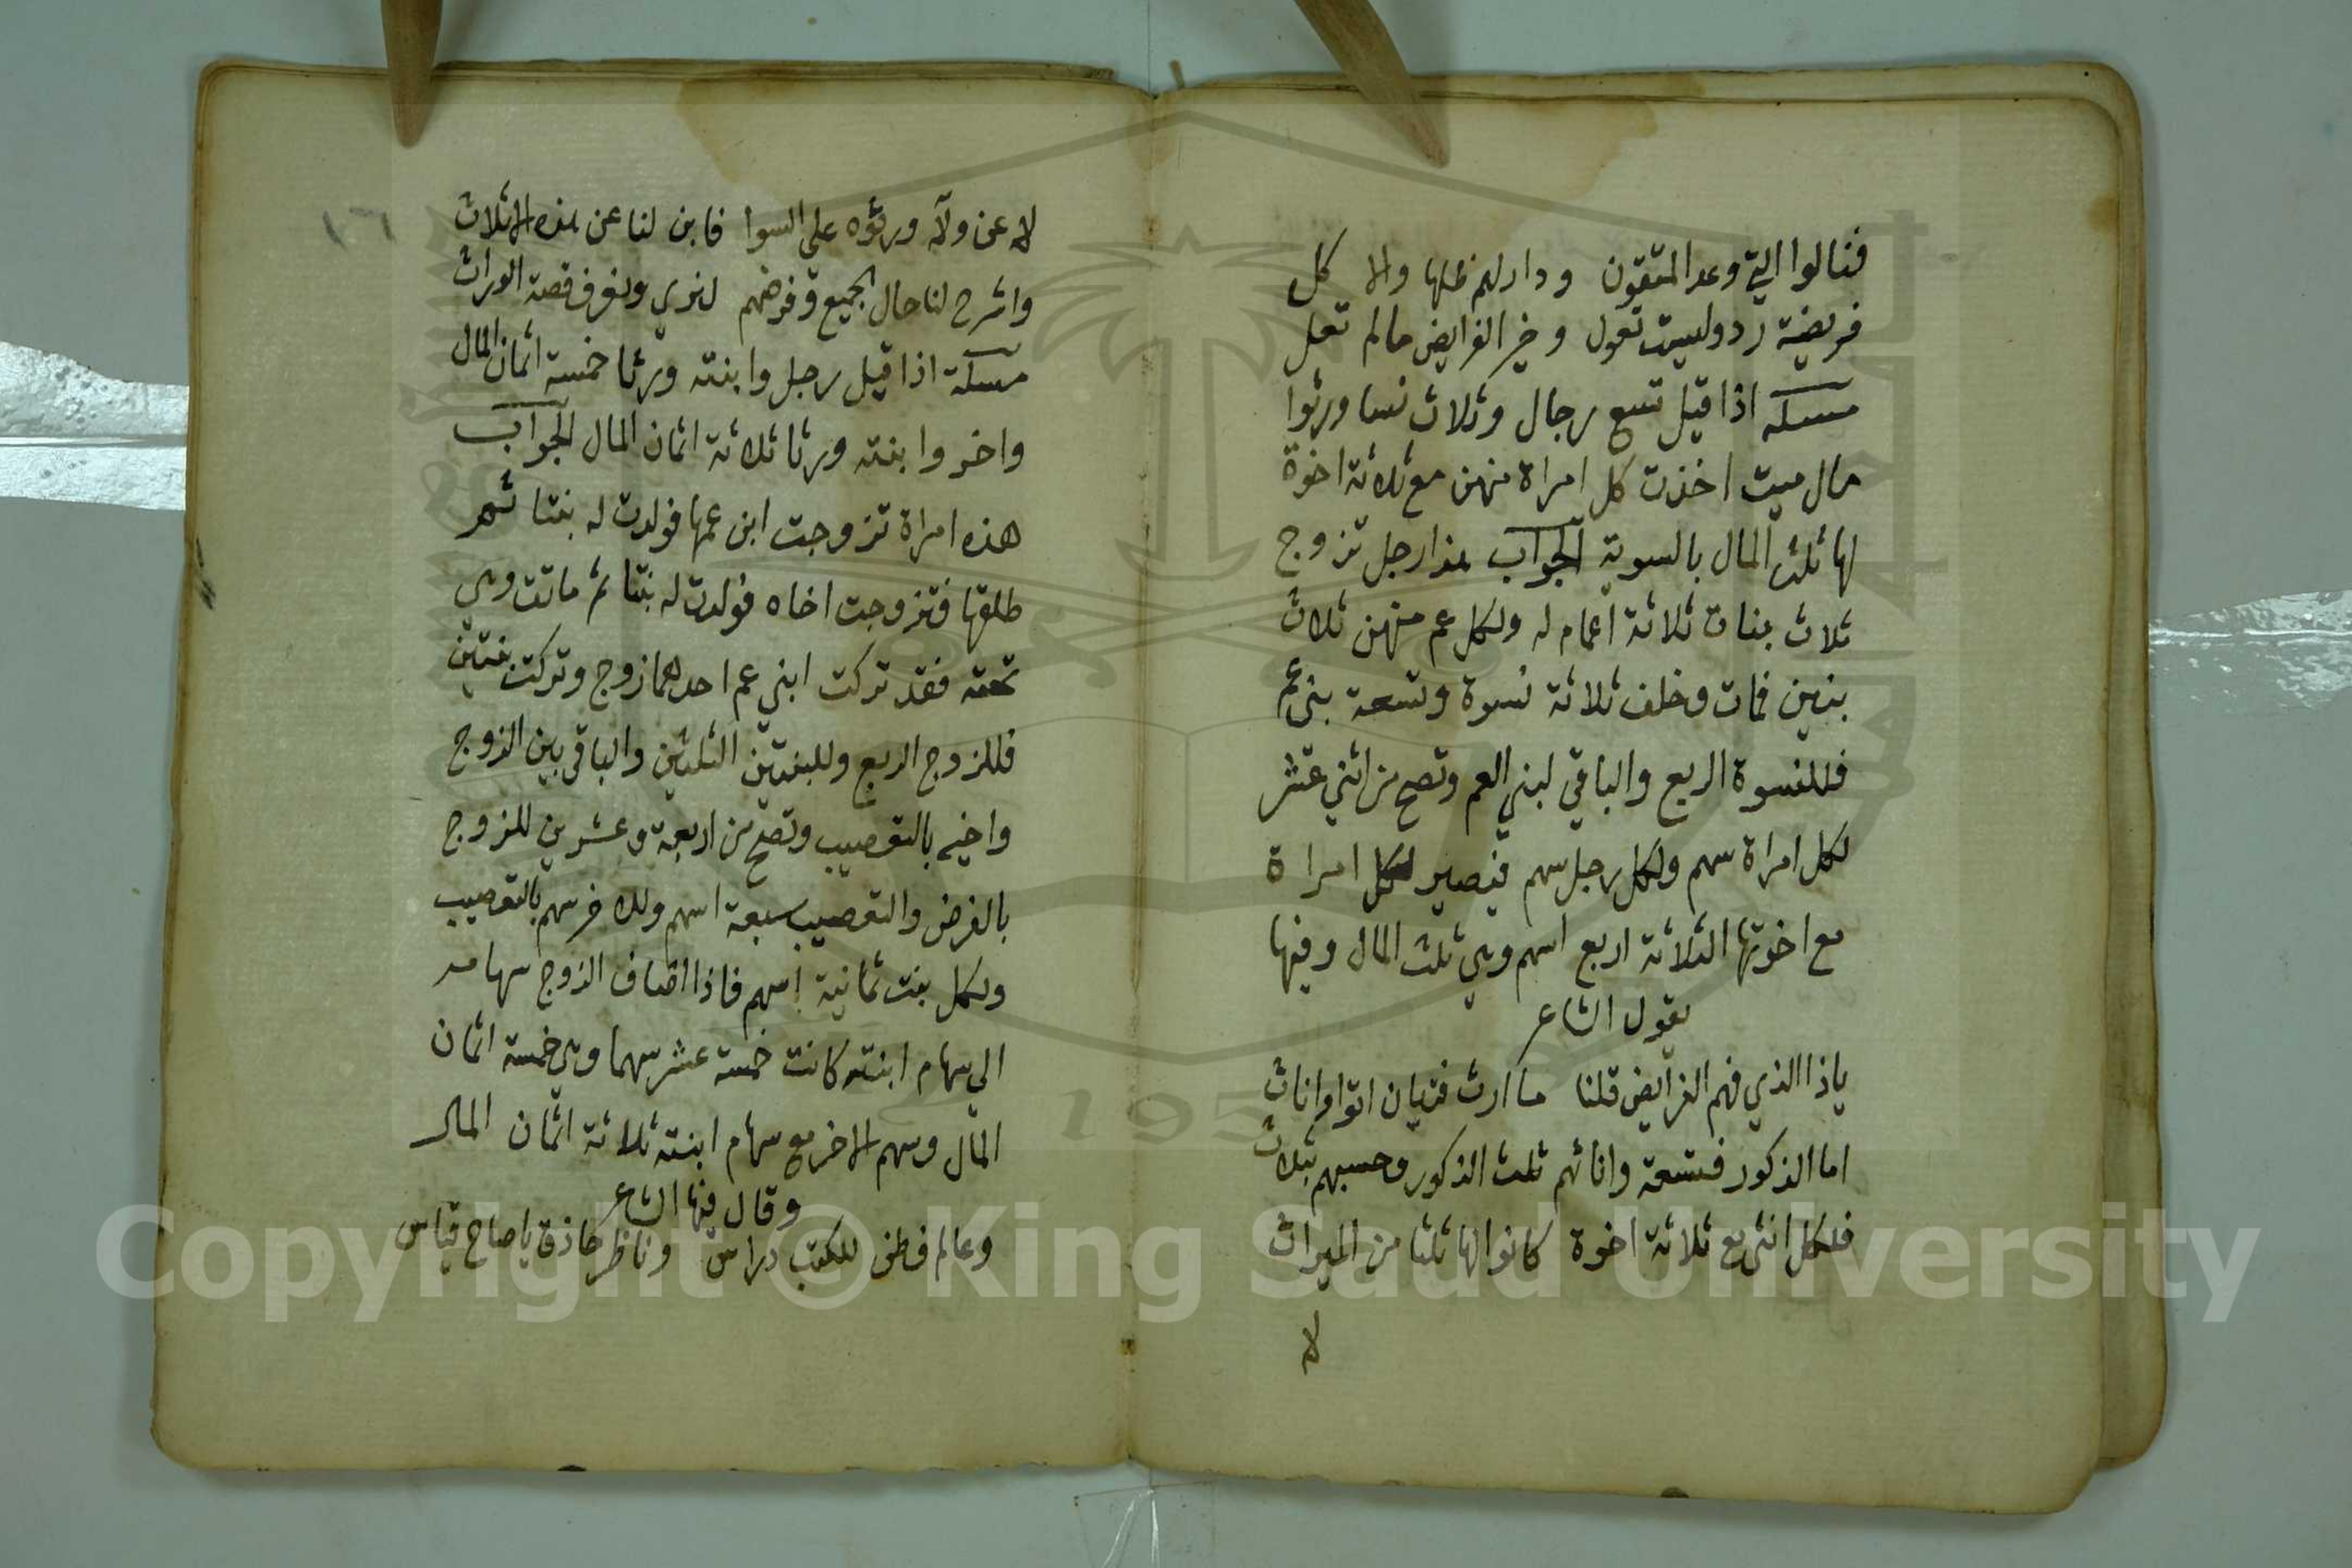 فنالوا التي وعد المتقون ودار لهم ظلها والا كل
فريضة رد وليست تعول وخير الفرايض مالم تعل
مسئلة اذا قيل تسع رجال وثلاث نسا ورثوا
مال ميت اخذت كل امراة منهن مع ثلاثة اخوة
لها ثلث المال بالسوية الجواب هذا رجل تزوج
ثلاث بنات ثلاثة اعمام له ولكل عم منهن ثلاث
بنين فمات وخلف ثلاثة نسوة وتسعة بني عم
فللنسوة الربع والباقي لبني العم وتصح من اثني عشر
لكل امراة سهم ولكل رجل سهم فيصير لكل امراة
مع اخوتها الثلاثة اربع اسهم وهي ثلث المال وفيها
يقول الشاعر
ياذا الذي فهم الفرايض قلنا ما ارث فتيان اتوا واناث
اما الذكور فتسعة واناثهم ثلث الذكور وحسبهم بثلاث
فلكل انثى مع ثلاثة اخوة كانوا لها ثلثا من الميراث
لا
لا عن ولآء ورثوه على السوا فابن لنا عن هذه الاثلاث
واشرح لنا حال الجميع وفرضهم لنري ونعرف قصة الوراث
مسئلة اذا قيل رجل وابنته ورثا خمسة اثمان المال
واخر وابنته ورثا ثلاثة اثمان المال الجواب
هذه امراة تزوجت ابن عمها فولدت له بنتا ثم
طلقها فتزوجت اخاه فولدت له بنتا ثم ماتت وهي
تحته فقد تركت ابني عم احدهما زوج وتركت بنتين
فللزوج الربع وللبنتين الثلثين والباقي بين الزوج
واخيه بالتعصيب وتصح من اربعة وعشرين للزوج
بالفرض والتعصيب سبعة اسهم وللاخر سهم بالتعصيب
ولكل بنت ثمانية اسهم فاذا اضاف الزوج سهامه
الي سهام ابنته كانت خمسة عشر سهما وهي خمسة اثمان
المال وسهم الاخر مع سهام ابنته ثلاثة اثمان المال
وقال فيها الشاعر
وعالم فطن للكتب دراس وناظر حاذق ياصاح قياس
١٦
Copyright © King Saud University
195